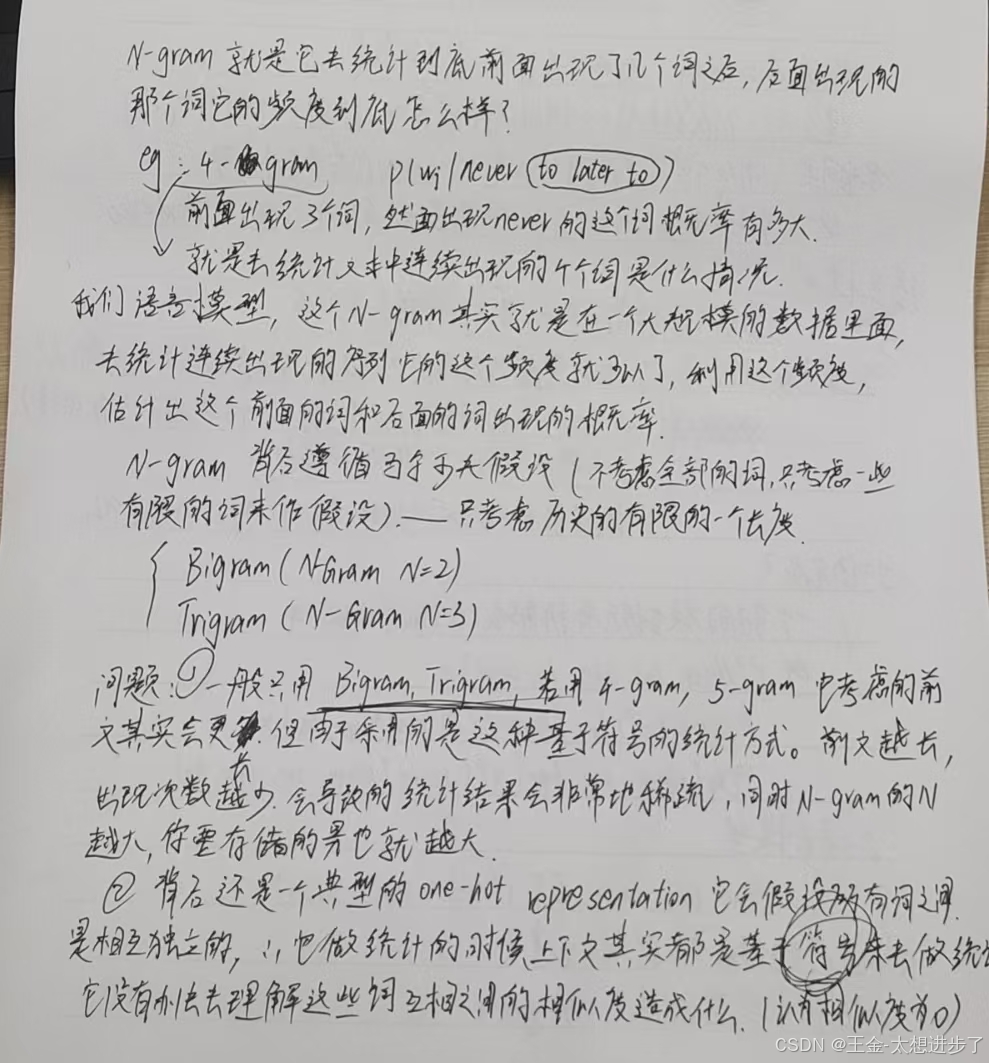 N-gram 就是它去统计到底前面出现了几个词之后，后面出现的
那个词它的频度到底怎么样？
eg：4-gram p(wj|never to later to)
前面出现3个词，然面出现never的这个词概率有多大.
就是去统计文本中连续出现的4个词是什么情况.
我们语言模型，这个N-gram其实就是在一个大规模的数据里面，
去统计连续出现的序列它的这个频度就可以了，利用这个频度，
估计出这个前面的词和后面的词出现的概率.
N-gram 背后遵循马尔可夫假设（不考虑全部的词，只考虑一些
有限的词来作假设）.——只考虑历史的有限的一个长度.
Bigram（N-Gram N=2）
Trigram（N-Gram N=3）
问题：①一般只用 Bigram, Trigram, 若用 4-gram, 5-gram 它考虑的前
文其实会更长. 但由于采用的是这种基于符号的统计方式。前文越长，
出现次数越少. 会导致的统计结果会非常地稀疏，同时N-gram的N
越大，你要存储的量也就越大.
② 背后还是一个典型的one-hot representation 它会假设所有词之间
是相互独立的，∴它做统计的时候上下文其实都是基于符号来去做统计
它没有办法去理解这些词互相之间的相似度造成什么.（认为相似度为0）
CSDN @王金-太想进步了